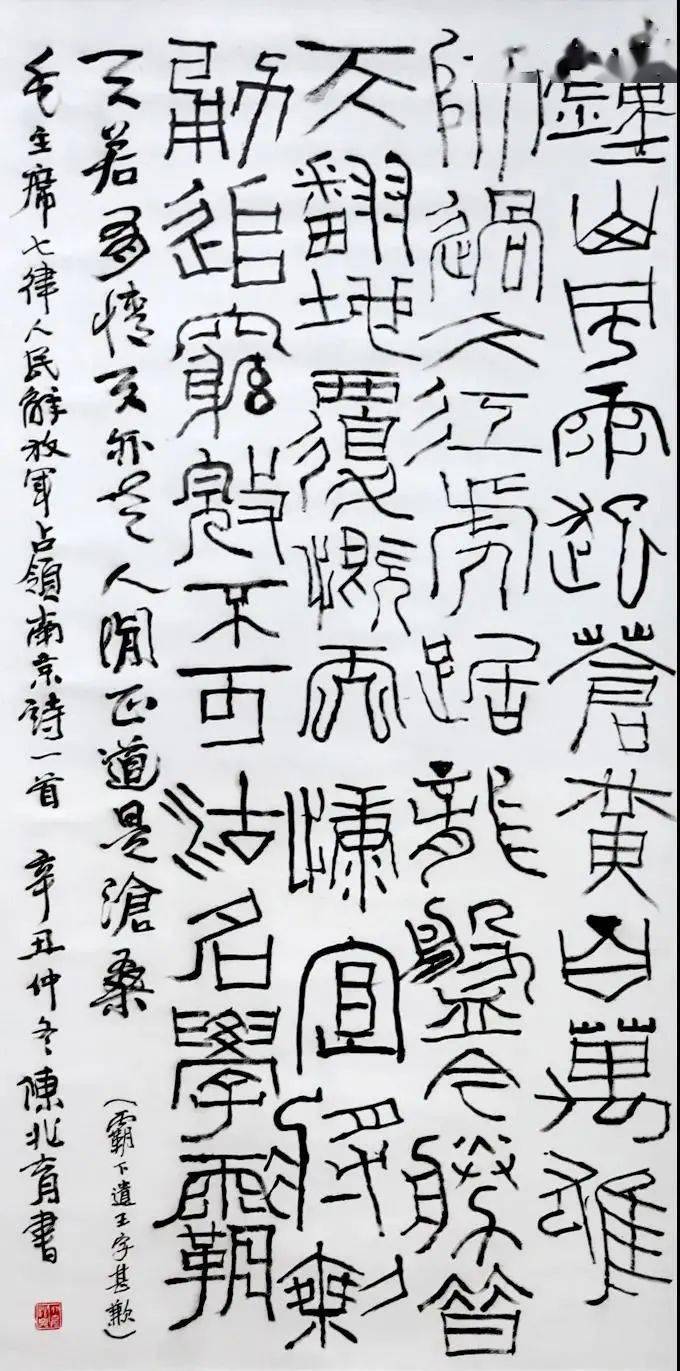 鍾山風雨起蒼黃百萬雄
師過大江虎踞龍盤今勝昔
天翻地覆慨而慷宜將剩
勇追窮寇不可沽名學霸
天若有情天亦老人間正道是滄桑
（霸下遺王字甚歉）
毛主席七律人民解放軍占領南京詩一首 辛丑仲冬陳兆育書